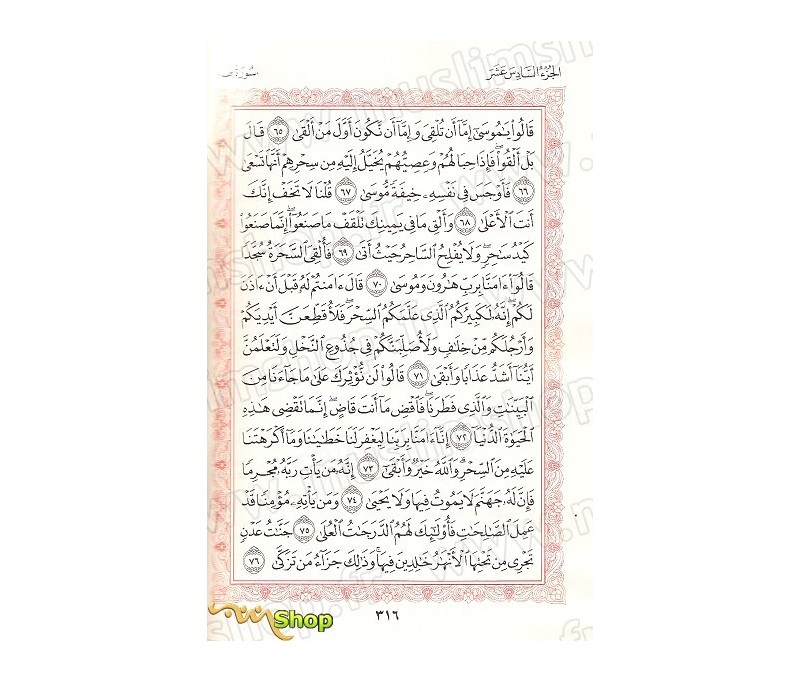 الجُزْءُ السَّادِسَ عَشَرَ
سُورَةُ طه
قَالُوا۟ يَٰمُوسَىٰٓ إِمَّآ أَن تُلْقِىَ وَإِمَّآ أَن نَّكُونَ أَوَّلَ مَنْ أَلْقَىٰ ٦٥ قَالَ
بَلْ أَلْقُوا۟ فَإِذَا حِبَالُهُمْ وَعِصِيُّهُمْ يُخَيَّلُ إِلَيْهِ مِن سِحْرِهِمْ أَنَّهَا تَسْعَىٰ
٦٦ فَأَوْجَسَ فِى نَفْسِهِۦ خِيفَةً مُّوسَىٰ ٦٧ قُلْنَا لَا تَخَفْ إِنَّكَ
أَنتَ الْأَعْلَىٰ ٦٨ وَأَلْقِ مَا فِى يَمِينِكَ تَلْقَفْ مَا صَنَعُوٓا۟ إِنَّمَا صَنَعُوا۟
كَيْدُ سَٰحِرٍ وَلَا يُفْلِحُ السَّاحِرُ حَيْثُ أَتَىٰ ٦٩ فَأُلْقِىَ السَّحَرَةُ سُجَّدًا
قَالُوٓا۟ ءَامَنَّا بِرَبِّ هَٰرُونَ وَمُوسَىٰ ٧٠ قَالَ ءَامَنتُمْ لَهُۥ قَبْلَ أَنْ ءَاذَنَ
لَكُمْ إِنَّهُۥ لَكَبِيرُكُمُ الَّذِى عَلَّمَكُمُ السِّحْرَ فَلَأُقَطِّعَنَّ أَيْدِيَكُمْ
وَأَرْجُلَكُم مِّنْ خِلَٰفٍ وَلَأُصَلِّبَنَّكُمْ فِى جُذُوعِ النَّخْلِ وَلَتَعْلَمُنَّ
أَيُّنَآ أَشَدُّ عَذَابًا وَأَبْقَىٰ ٧١ قَالُوا۟ لَن نُّؤْثِرَكَ عَلَىٰ مَا جَآءَنَا مِنَ
الْبَيِّنَٰتِ وَالَّذِى فَطَرَنَا فَاقْضِ مَآ أَنتَ قَاضٍ إِنَّمَا تَقْضِى هَٰذِهِ
الْحَيَوٰةَ الدُّنْيَآ ٧٢ إِنَّآ ءَامَنَّا بِرَبِّنَا لِيَغْفِرَ لَنَا خَطَٰيَٰنَا وَمَآ أَكْرَهْتَنَا
عَلَيْهِ مِنَ السِّحْرِ وَاللَّهُ خَيْرٌ وَأَبْقَىٰٓ ٧٣ إِنَّهُۥ مَن يَأْتِ رَبَّهُۥ مُجْرِمًا
فَإِنَّ لَهُۥ جَهَنَّمَ لَا يَمُوتُ فِيهَا وَلَا يَحْيَىٰ ٧٤ وَمَن يَأْتِهِۦ مُؤْمِنًا قَدْ
عَمِلَ الصَّٰلِحَٰتِ فَأُو۟لَٰٓئِكَ لَهُمُ الدَّرَجَٰتُ الْعُلَىٰ ٧٥ جَنَّٰتُ عَدْنٍ
تَجْرِى مِن تَحْتِهَا الْأَنْهَٰرُ خَٰلِدِينَ فِيهَا وَذَٰلِكَ جَزَآءُ مَن تَزَكَّىٰ ٧٦
٣١٦
Shop